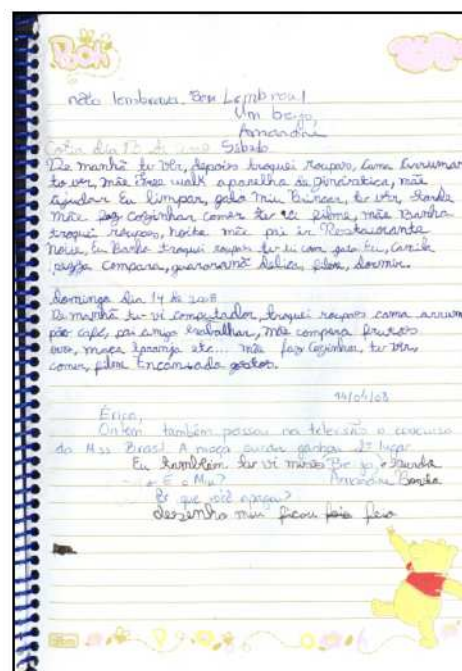 Pooh
não lembrava. Bom Lembrou!
Um beijo,
Amandine
dia 13 de Sábado
De manhã tv ver, depois troquei roupas, cama arrumar
tv ver, mãe Free walk aparelha de ginástica, mãe
ajudar Eu limpar, gato miu Brincar, tv ver, tarde
mãe faz cozinhar comer tv vi filme, mãe Banho
troquei roupas, noite mãe pai ir Restaurante
noiva, Eu Banho troquei roupas tv vi com gato Eu, Camila
pizza compara, guaraná delica, filme, dormir.
domingo dia 14 de 2008
De manhã tv vi computador, troquei roupas cama arrum
pão café, pai amigo trabalhar, mãe compera frutas
uva, maça laranja etc... mãe faz cozinhar, tv ver,
comer, filme Encansado gostos.
14/04/08
Érica,
Ontem também passou na televisão o concurso
da Miss Brasil. A moça surda ganhou 2º lugar.
Eu também tv vi miss Beijo,
E o Miu? Amandine Bonita
Por que você apagou?
desenho miu ficou feio feio